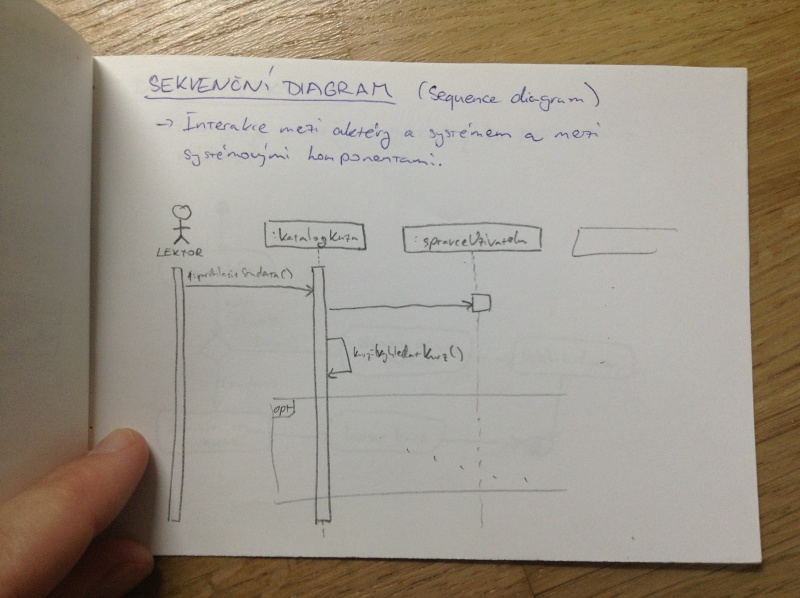 SEKVENČNÍ DIAGRAM (Sequence diagram)
→ Interakce mezi aktéry a systémem a mezi
systémovými komponentami.
LEKTOR
:katalogKurzu
:spravceUzivatelu
kurz=vyhledatKurz()
opt